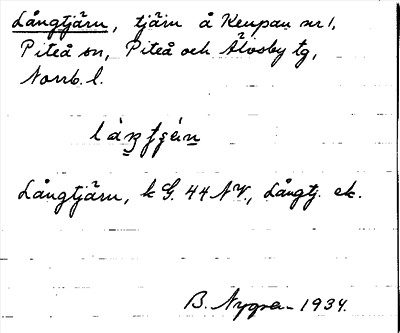 Långtjärn, tjärn å Kenpau nr 1,
Piteå sn, Piteå och Älvsby tg,
Norrb. l.
Långtjärn, k G. 44 NV., Långtj. ek.
B. Nygren 1934.